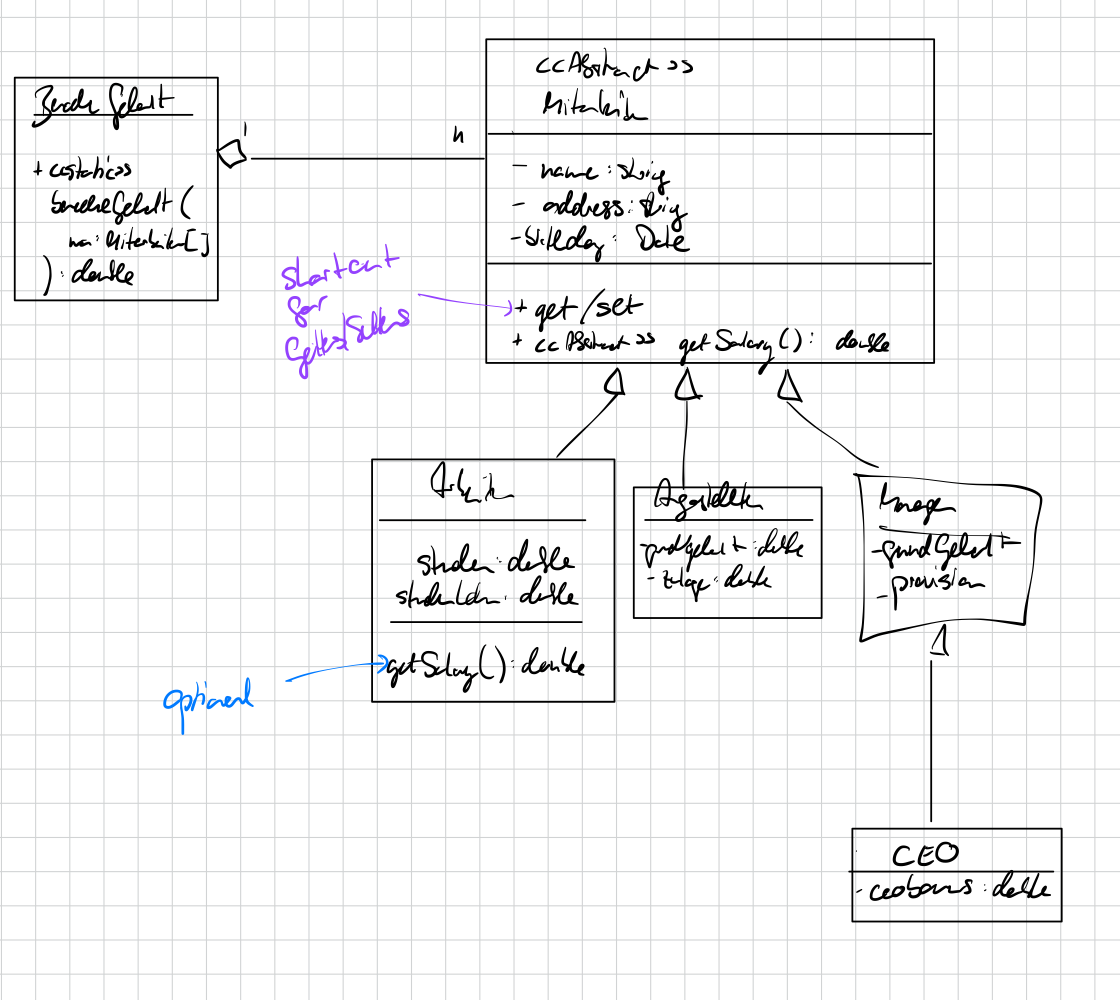 Berechne Gehalt
+ <<static>>
berechneGehalt (
ma: Mitarbeiter[]
) : double
1
n
<<Abstract>>
Mitarbeiter
- name : String
- address : String
- birthday : Date
+ get/set
+ <<Abstract>> getSalary() : double
shortcut
for
Getters/Setters
Arbeiter
stunden : double
stundenlohn : double
getSalary() : double
optional
Angestellter
- grundgehalt : double
- zulage : double
Manager
- grundGehalt
- provision
CEO
- ceobonus : double